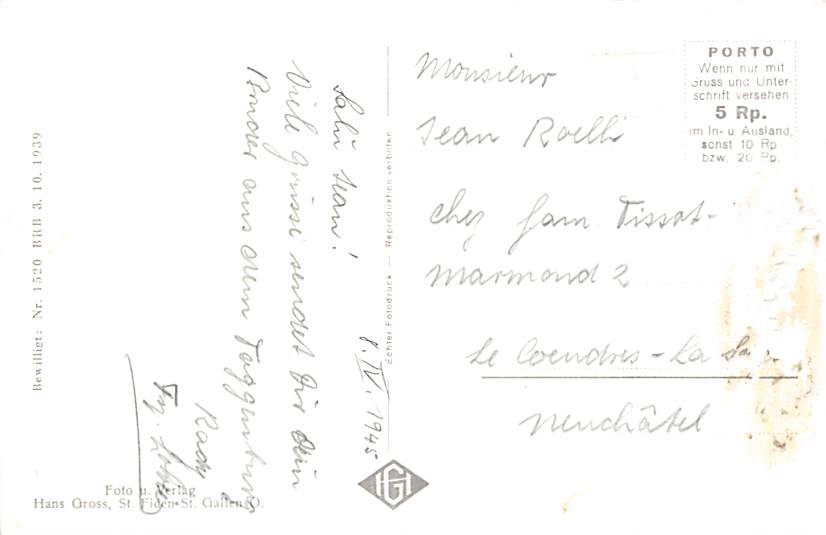 Salü Jean!
Viele Grüsse sendet Dir Dein
Bruder aus dem Toggenburg
8. IV. 1945
Monsieur
Jean Roelli
chez fam Tissot-
Marmond 2
Le Coendres - La
Neuchâtel
PORTO
Wenn nur mit
Gruss und Unter-
schrift versehen
5 Rp.
im In- u. Ausland,
sonst 10 Rp
bzw. 20 Rp.
Echter Fotodruck — Reproduktion verboten
Bewilligt: Nr. 1520 BRB 3. 10. 1939
Foto u. Verlag
Hans Gross, St. Fiden-St. Gallen O.